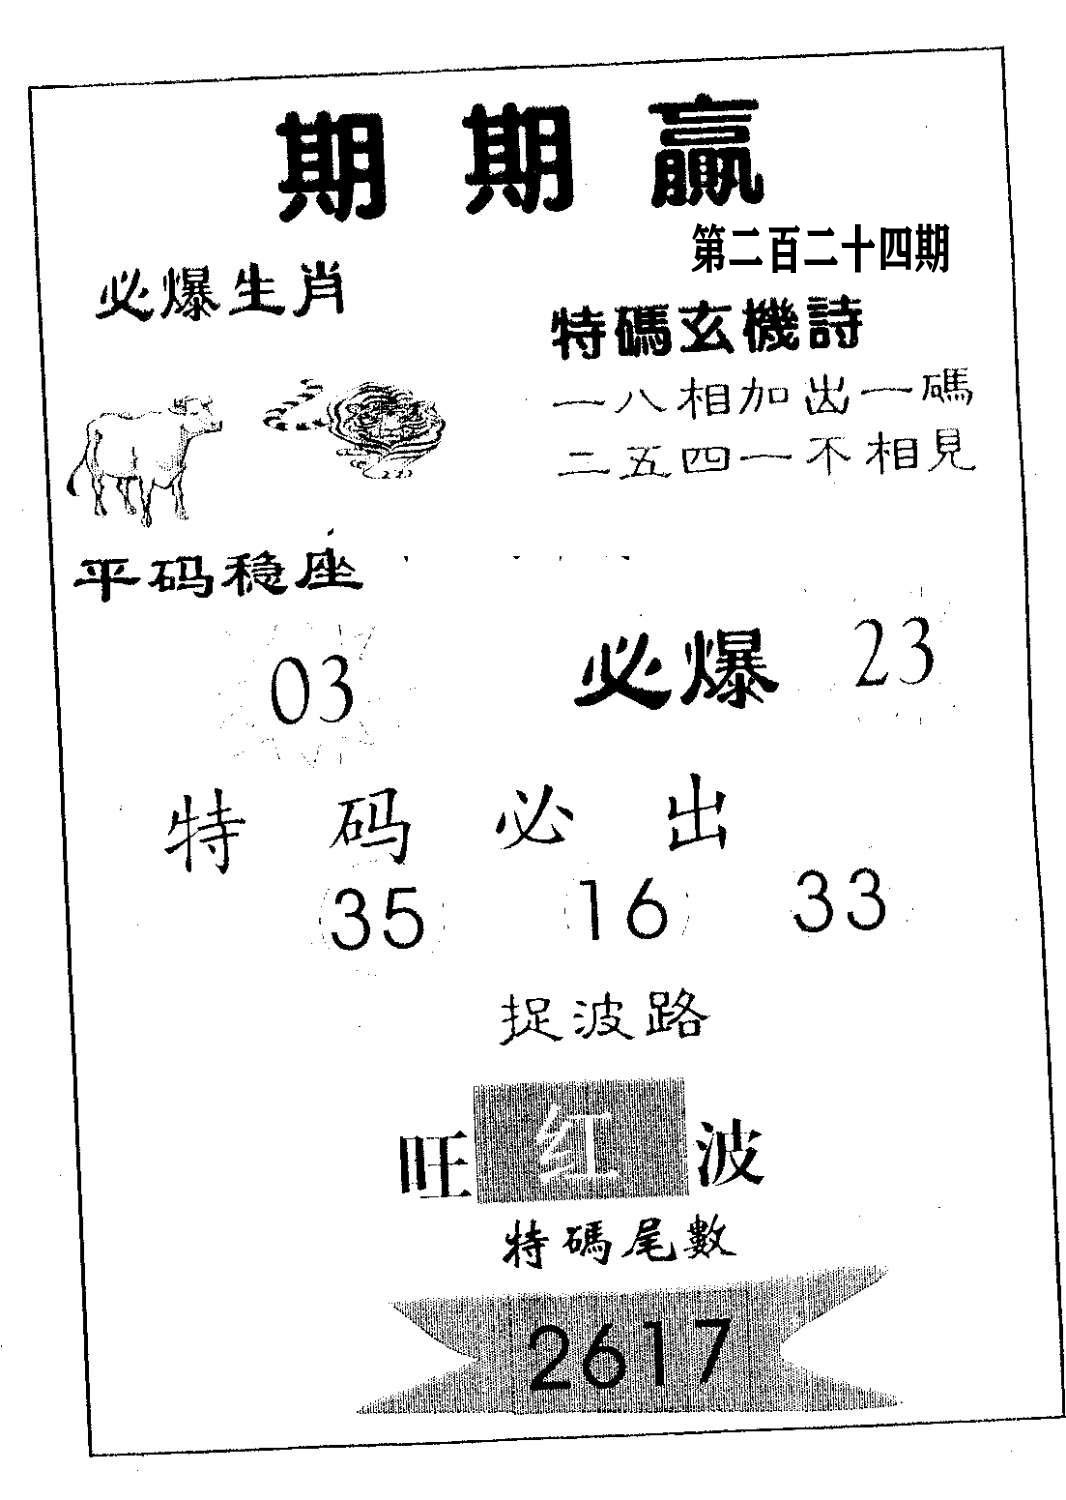 期期贏
第二百二十四期
必爆生肖
特碼玄機詩
一八相加出一碼
二五四一不相見
平码稳座
03
必爆 23
特码必出
35 16 33
捉波路
旺红波
特碼尾數
2617